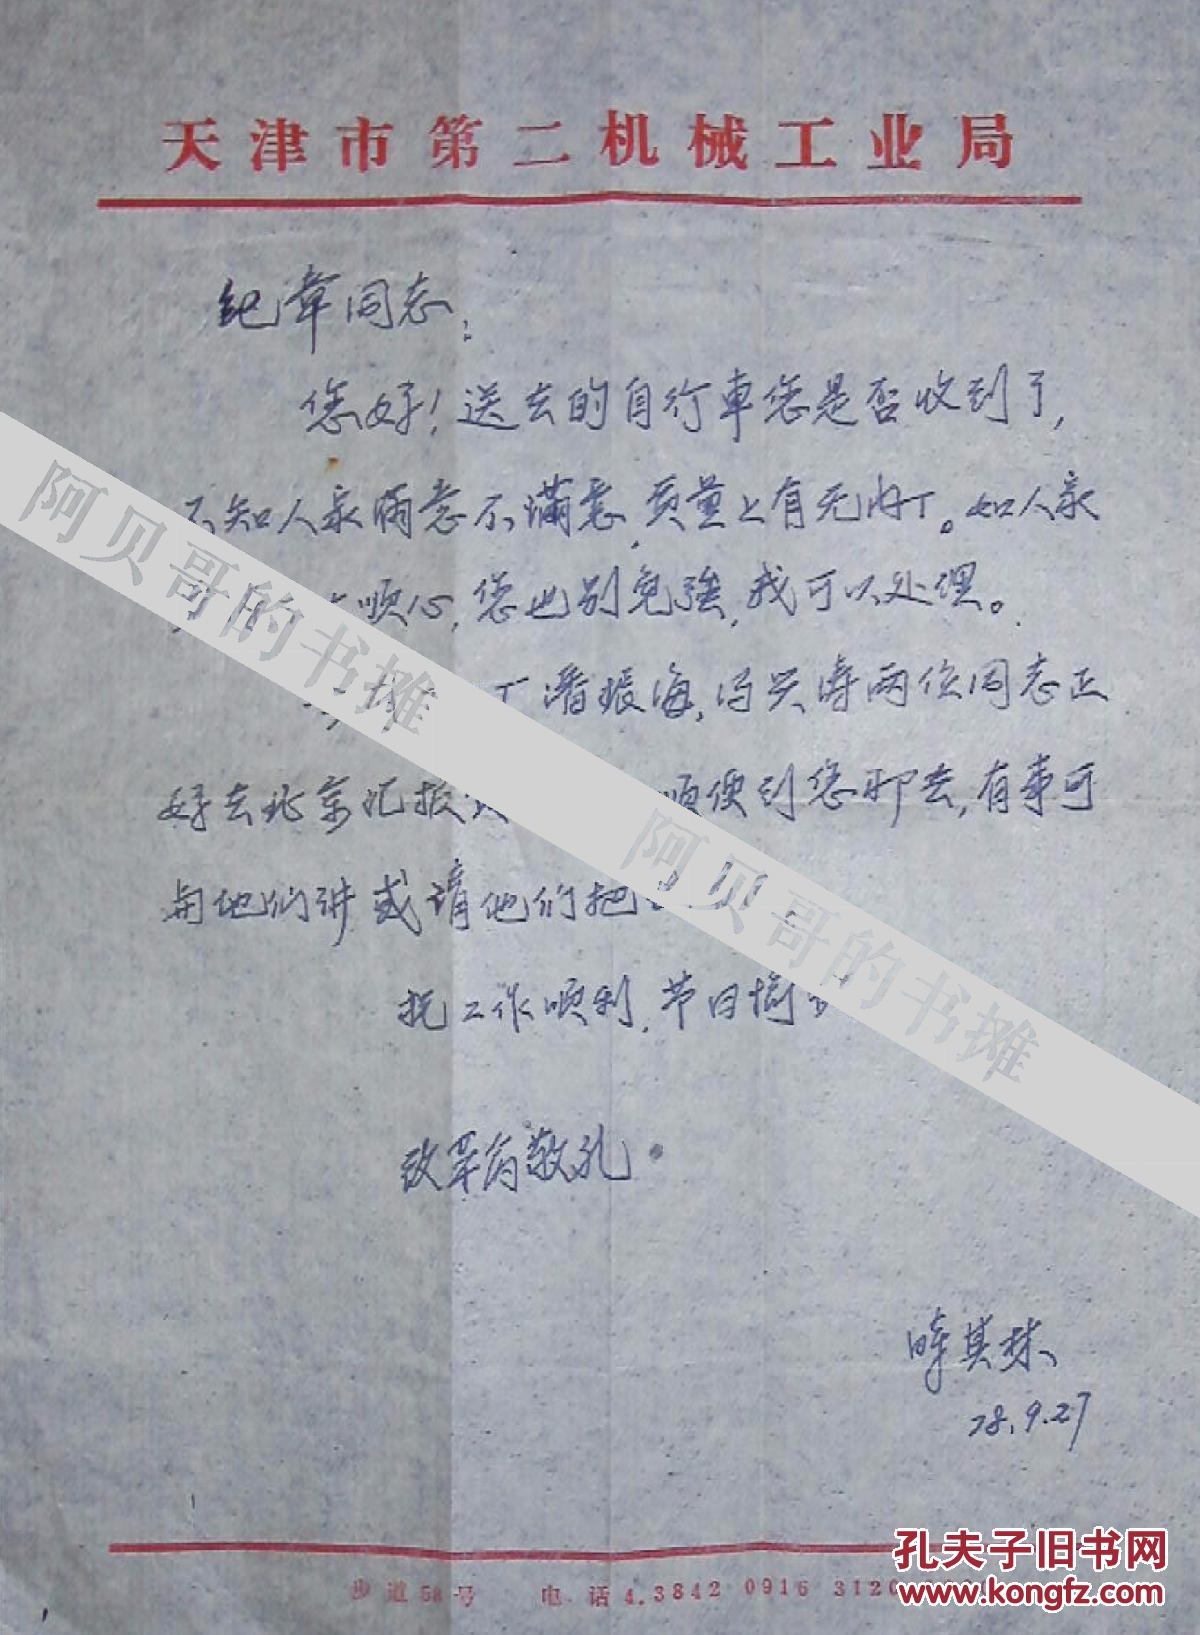 天津市第二机械工业局
纪章同志：
您好！送去的自行車您是否收到了，
不知人家满意不满意，质量上有无内丁。如人家
顺心，您也别免强，我可以处理。
潘振海，冯兴涛两位同志正
好去北京汇报 顺便到您那去，有事可
与他们讲或请他们把
祝工作顺利，节日愉
致革命敬礼。
其林
78.9.27
步道58号 电话4.3842 0916 3120
阿贝哥的书摊
阿贝哥的书摊
孔夫子旧书网
www.kongfz.com